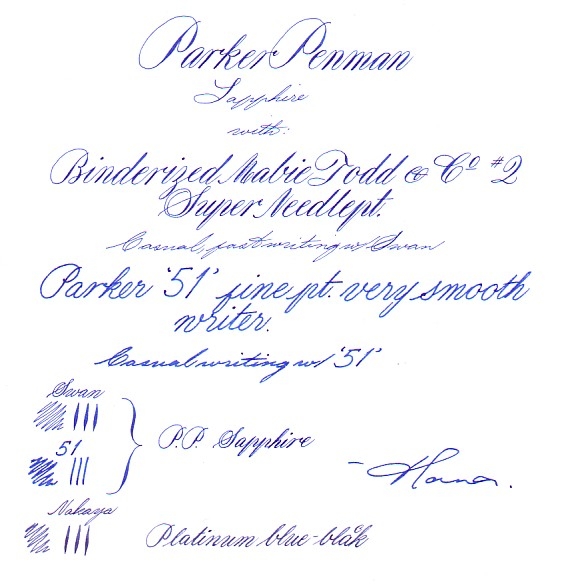 Parker Penman
Sapphire
with:
Binderized Mabie Todd & Co #2
Super Needlept.
Casual, fast writing w/ Swan
Parker '51' fine pt. very smooth
writer.
Casual writing w/ '51'
Swan
51
P.P. Sapphire
Nakaya
Platinum blue-black